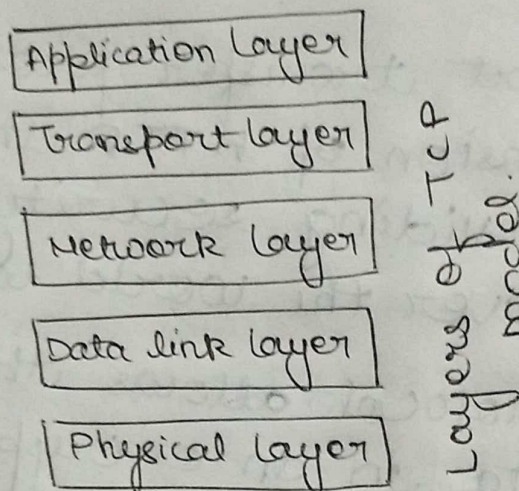 Application Layer
Transport layer
Network layer
Data link layer
Physical layer
Layers of TCP
model.